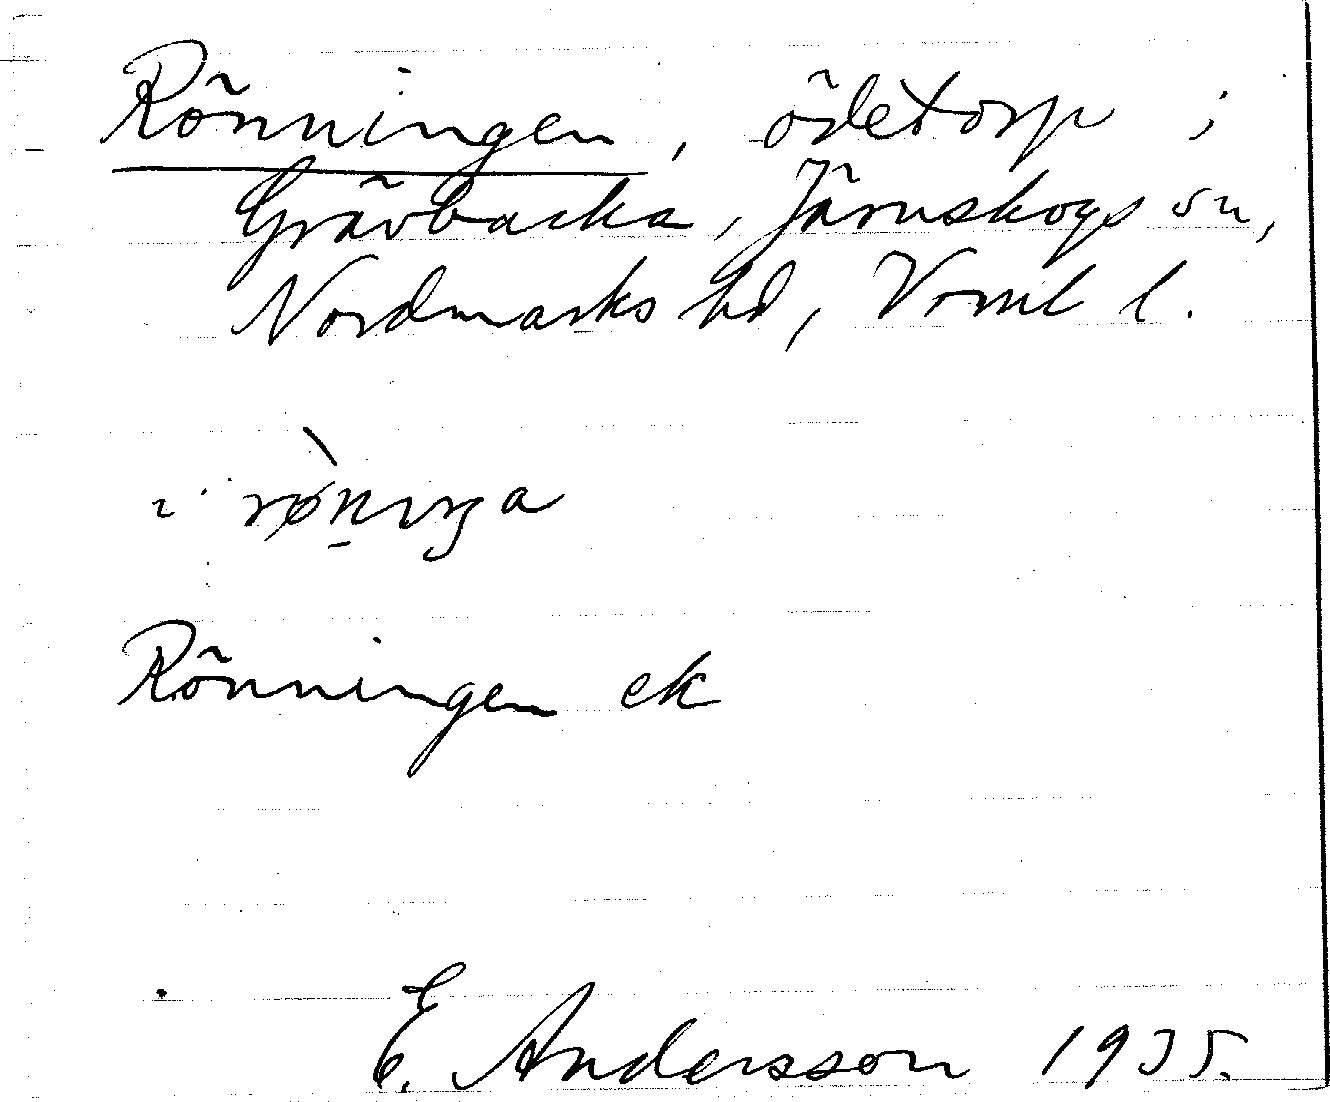 Rönningen, ödetorp i
Grävbacka, Järnskogs sn,
Nordmarks hd, Verml l.
i røniŋa
Rönningen ek
E. Andersson 1935.